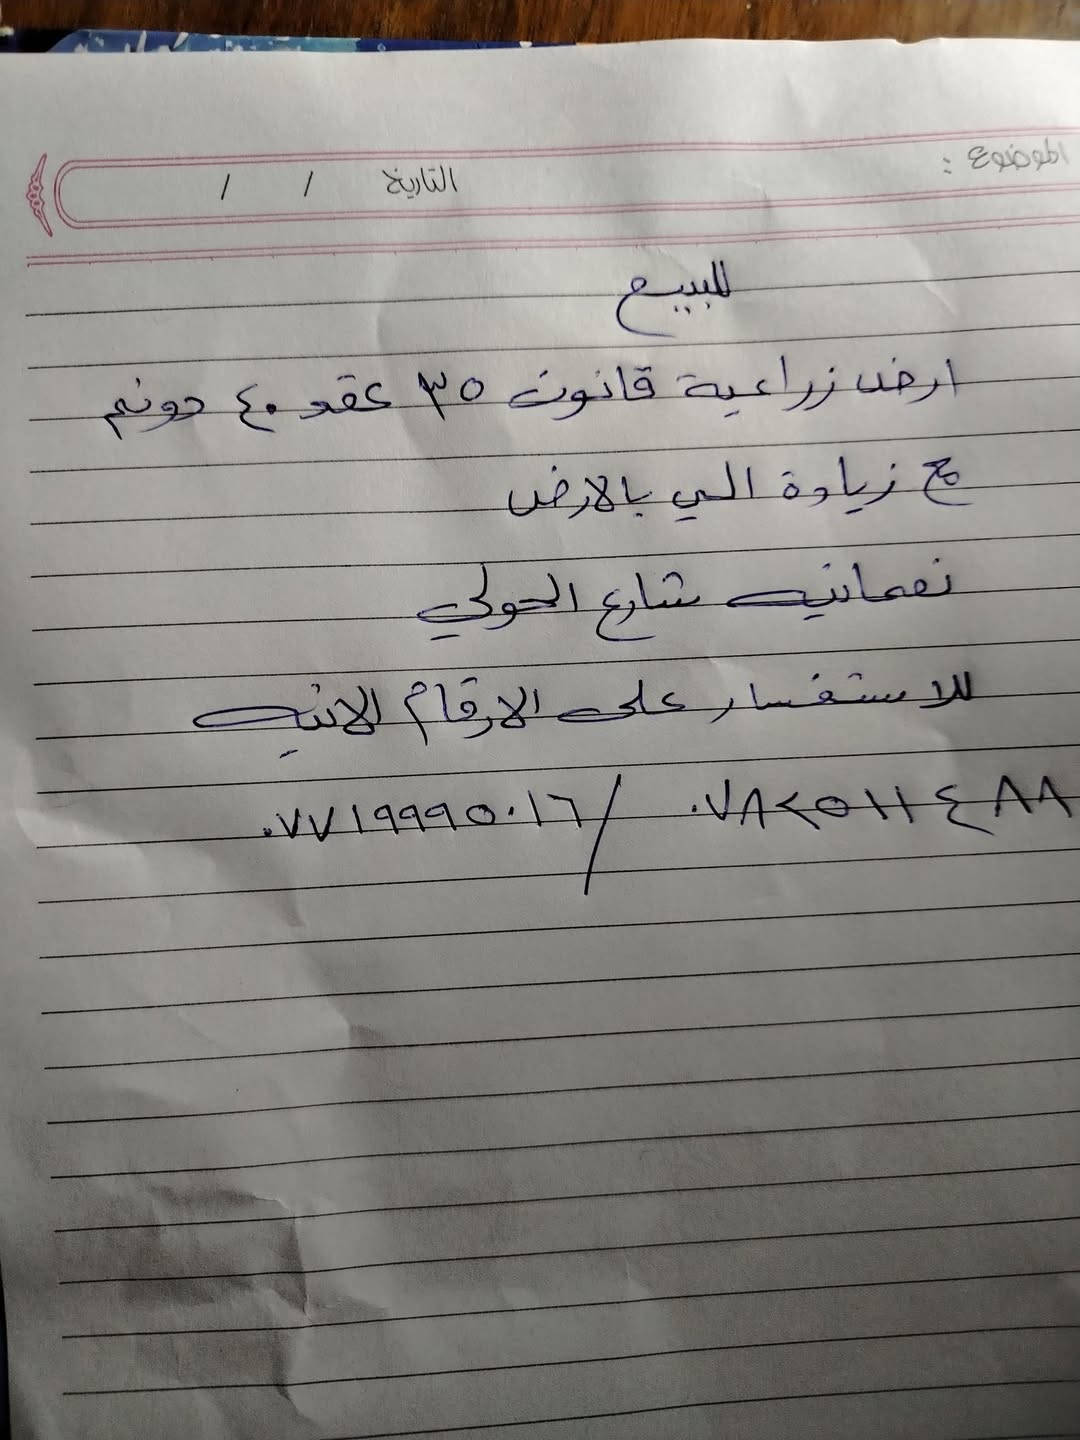 الموضوع : التاريخ / /
للبيع
ارض زراعية قانون ٣٥ عقد ٤٠ دونم
مع زيادة الي بالارض
نعمانيه شارع الحولي
للاستفسار على الارقام الاتيه
٠٧٨٢٥١١٤٨٨ / ٠٧٧١٩٩٩٥٠١٦